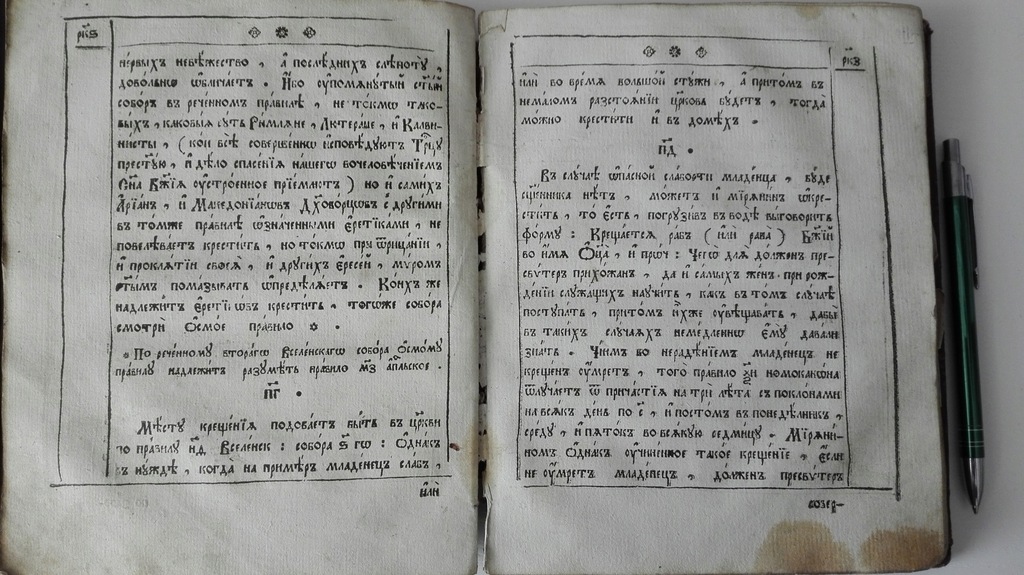 рк҃ѕ
первыхъ невѣжество, а҆ послѣднихъ слѣпоту,
довольнѡ ѡ҆бличаетъ. И҆бо ѹ҆помянутый ст҃ый
соборъ въ реченномъ правилѣ, не токмѡ тако-
выхъ, каковыѧ суть Римляне, Лютеране, и҆ Калви-
нисты, (кои всѣ совершеннѡ и҆споведуютъ Тр҃цу
престую, и҆ дѣло спасенїѧ нашегѡ вочеловѣченїемъ
Сн҃а Бж҃їѧ ѹ҆строенное прїемлютъ) но и҆ самихъ
А҆рїанъ, и҆ Македонїанѡвъ Дх҃оворцѡвъ с̾ другими
въ томже правилѣ ѡ҆значенными є҆ретїками, не
повелѣваетъ крестить, но токмѡ при ѿрицанїи,
и҆ проклѧтїи своеѧ, и҆ другихъ є҆ресей, мѵромъ
ст҃ымъ помазывать ѡ҆предѣлѧетъ. Коихъ же
надлежитъ є҆ретїкѡвъ крестить, тогѡже собора
смотри Ѻ҆смое правило
По реченному втораго Вселенскагѡ собора Ѻ҆смому
правилу надлежитъ разумѣть правило м҃з ап҃льское.
п҃г.
Мѣсту крещенїѧ подоваетъ быть въ цр҃кви
по правилу н҃д, Вселенск: собора ѕ҃гѡ: Ѻ҆днакъ
въ нуждѣ, когда на примѣръ младенецъ слабъ,
и҆лѝ
рк҃з
и҆лѝ во времѧ большой стужи, а҆ притомъ въ
немаломъ разстоѧнїи цр҃кова будетъ, тогда
можно крестити и҆ въ домѣхъ.
п҃д.
Въ случаѣ ѡ҆пасной слабости младенца, буде
сщ҃енника нѣтъ, можетъ и҆ мїрѧнинъ ѡ҆кре-
стить, то є҆сть, погрузивъ въ водѣ выговорить
форму: Крещаетсѧ рабъ (и҆лѝ раба) Бж҃їй
во и҆мѧ Ѻ҆ц҃а, и҆ проч: Чегѡ длѧ долженъ пре-
свѵтеръ прихожанъ, да и҆ самыхъ женъ при рож-
денїи служащихъ научить, какъ въ томъ случаѣ
поступать, притомъ и҆хже ѹ҆вѣщавать, дабы
въ такихъ случаѧхъ немедленнѡ є҆му давали
знать. Чїимъ во нерадѣнїемъ младенецъ не
крещенъ ѹ҆мретъ, того правило номоканѡна
ѿлучаетъ ѿ причастїѧ на три лѣта съ поклонами
на всѧкъ день по с҃, и҆ постомъ въ понедѣлникъ,
среду, и҆ пѧтокъ во всѧкую седмицу. Мїрѧни-
номъ Ѻ҆днакъ ѹ҆чиненное такое крещенїе, є҆сли
не ѹ҆мретъ младенецъ, долженъ пресвѵтеръ
созер-